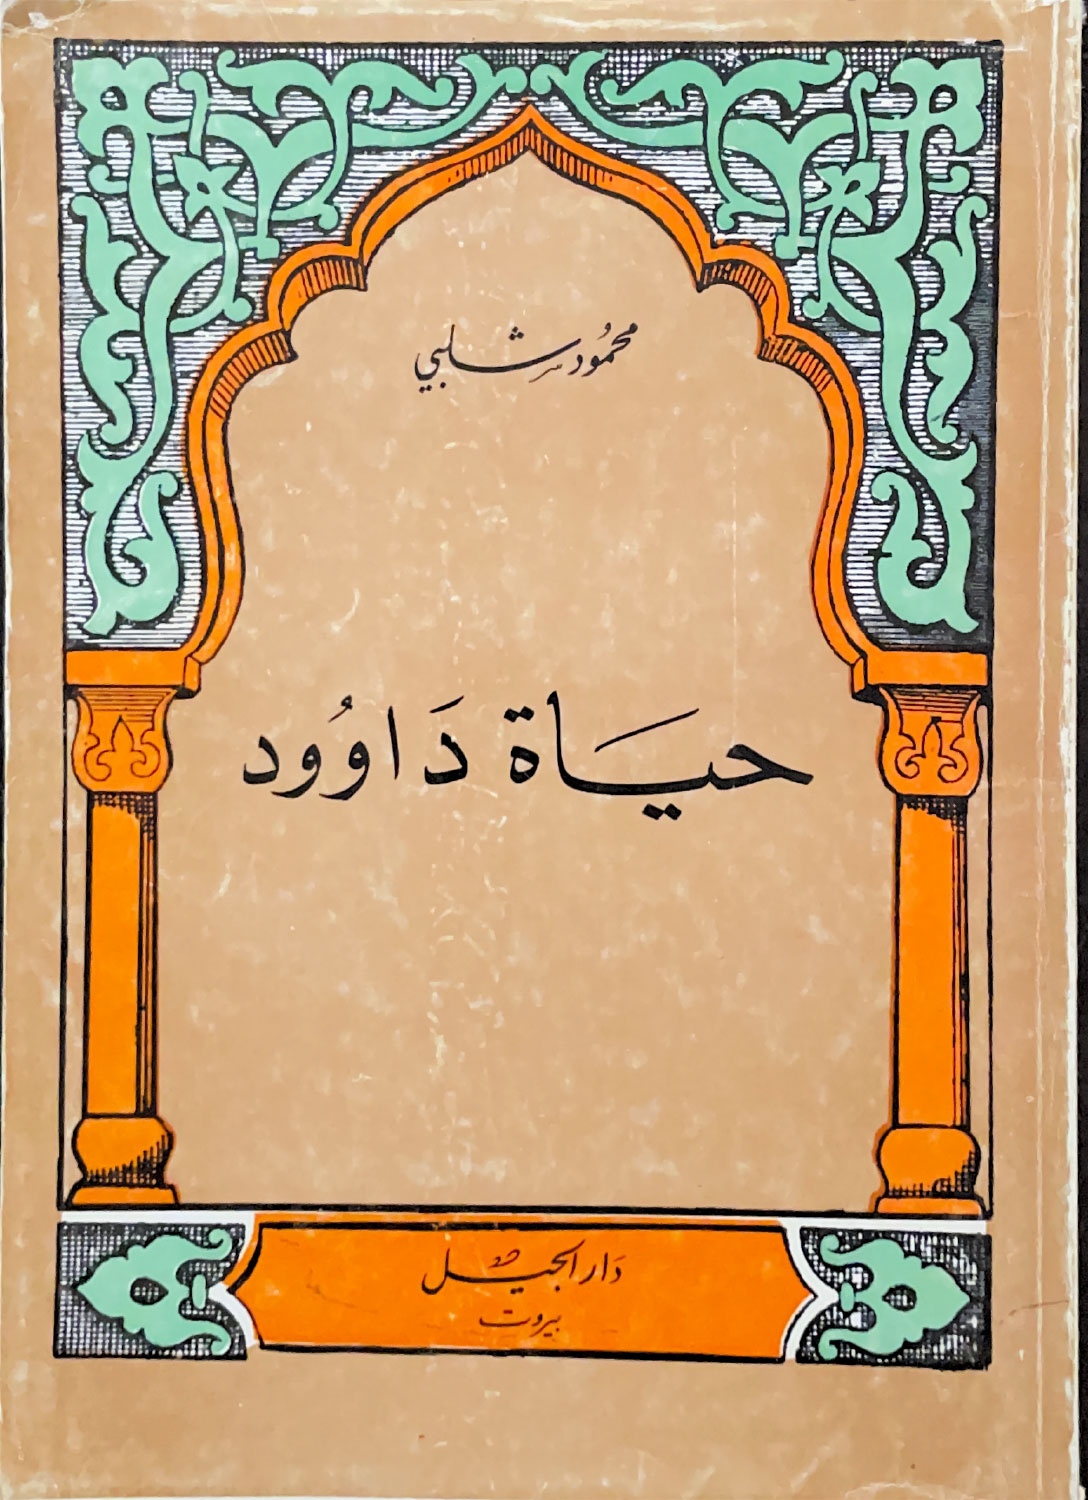 محمُود شلبي
حياة دَاوُود
دَار الجيل
بيروت